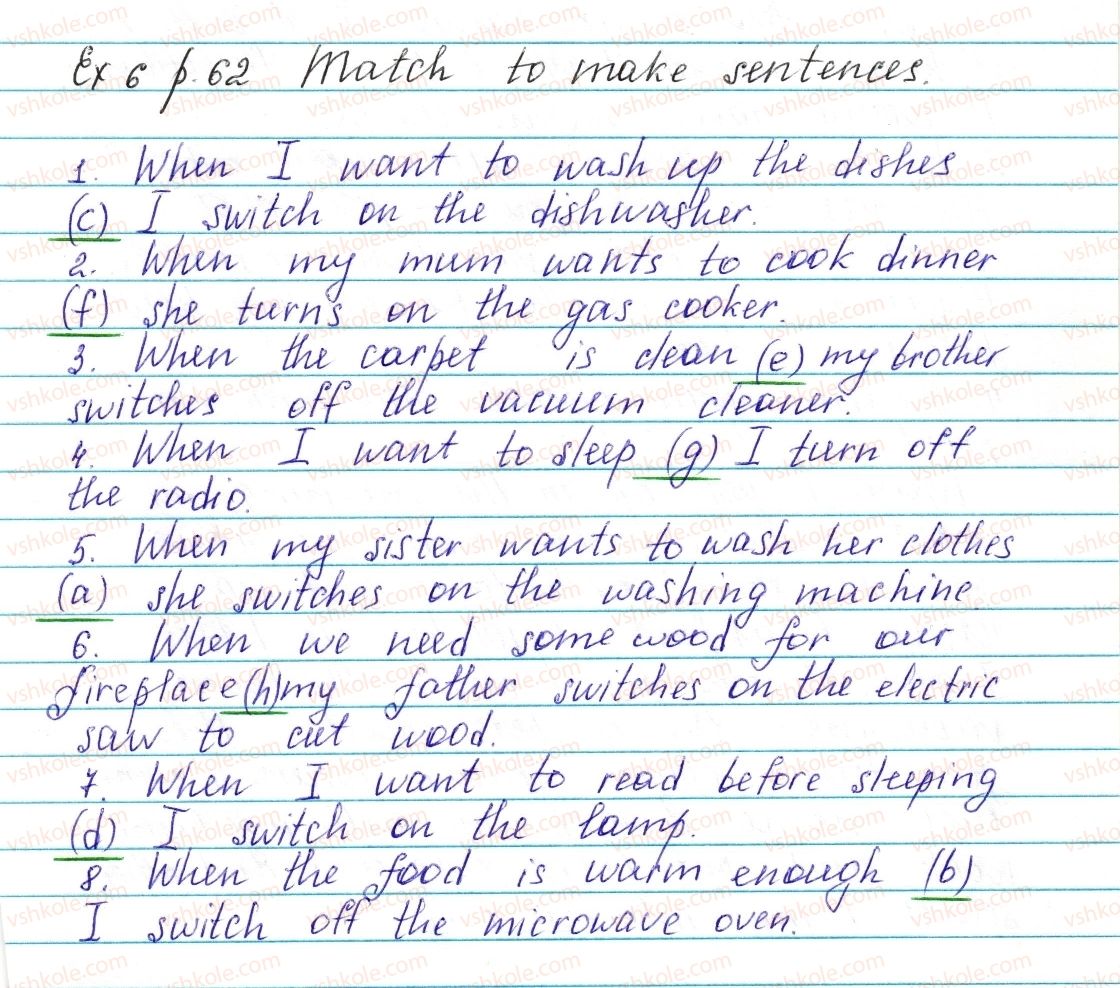 Ex 6 p. 62 Match to make sentences.
1. When I want to wash up the dishes
(c) I switch on the dishwasher.
2. When my mum wants to cook dinner
(f) she turns on the gas cooker.
3. When the carpet is clean (e) my brother
switches off the vacuum cleaner.
4. When I want to sleep (g) I turn off
the radio.
5. When my sister wants to wash her clothes
(a) she switches on the washing machine
6. When we need some wood for our
fireplace (h) my father switches on the electric
saw to cut wood.
7. When I want to read before sleeping
(d) I switch on the lamp.
8. When the food is warm enough (b)
I switch off the microwave oven.
vshkole.com